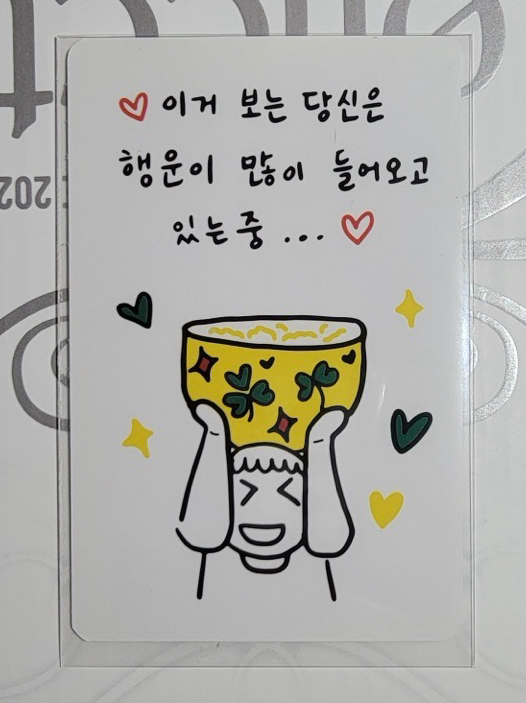 이거 보는 당신은
행운이 많이 들어오고
있는중 ...
202